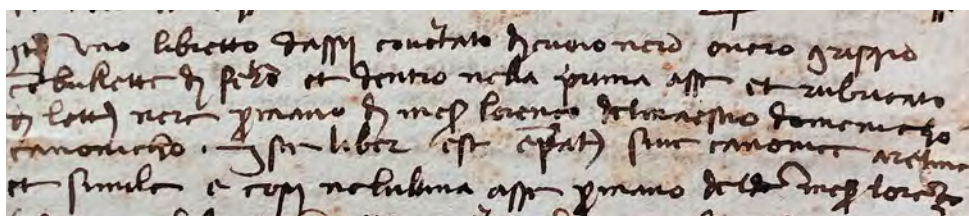 Ite(m) uno libretto d assi covertato di cuoio nero overo grosso
co(n) bullette di fer(r)o et dentro nella prima asse et rubricato
di lette(re) nere p(er) mano di mes(ser) lorenço del maestro domenicho
canonicho. Iste liber est ep(iscop)at(us) sive canonice aretine
et simile e cosi nel ultima asse p(er) mano del de(tto) mes(ser) lorenço